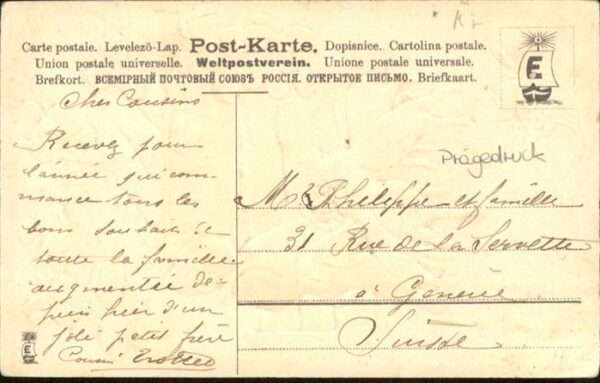 Carte postale. Levelező-Lap. Post-Karte. Dopisnice. Cartolina postale.
Union postale universelle. Weltpostverein. Unione postale universale.
Brefkort. ВСЕМІРНЫЙ ПОЧТОВЫЙ СОЮЗЪ РОССІЯ. ОТКРЫТОЕ ПИСЬМО. Briefkaart.
E
Chers Cousins
Recevez pour
l'année qui com-
mance tous les
bons souhaits de
toute la famille
augmentée de-
puis hier d'un
joli petit frère
Cousin
E
Prägedruck
Mr Philippe et famille
31 Rue de la Servette
à Genève
Suisse